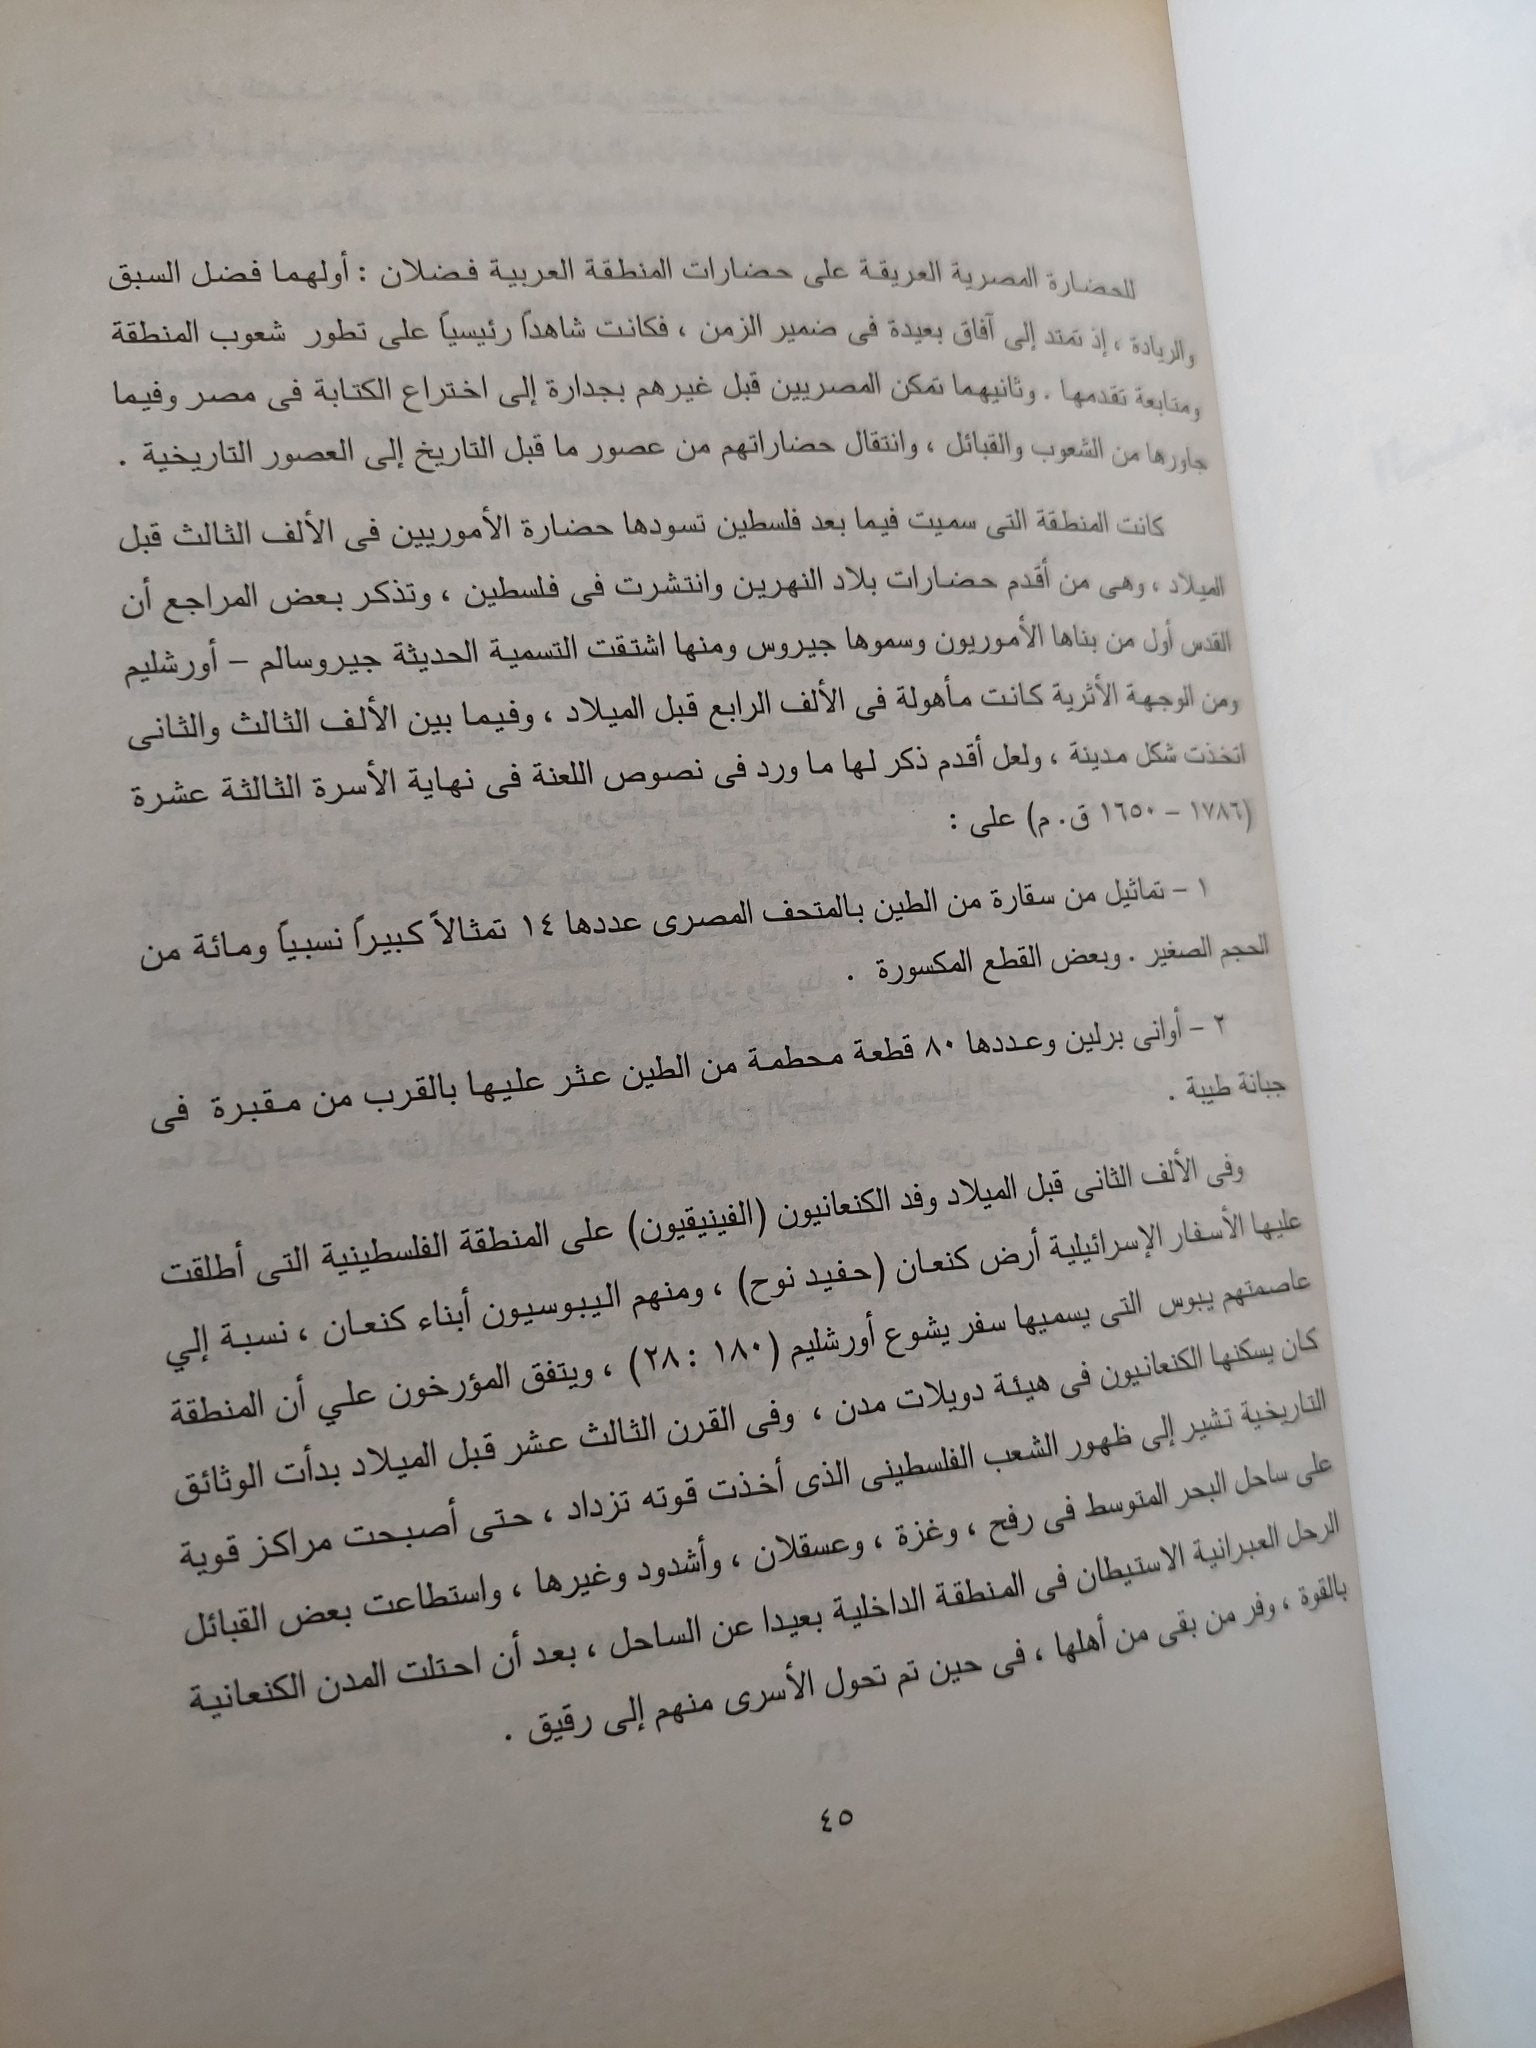 للحضارة المصرية العريقة على حضارات المنطقة العربية فضلان : أولهما فضل السبق
والريادة ، إذ تمتد إلى آفاق بعيدة فى ضمير الزمن ، فكانت شاهداً رئيسياً على تطور شعوب المنطقة
ومتابعة تقدمها . وثانيهما تمكن المصريين قبل غيرهم بجدارة إلى اختراع الكتابة فى مصر وفيما
جاورها من الشعوب والقبائل ، وانتقال حضاراتهم من عصور ما قبل التاريخ إلى العصور التاريخية .
كانت المنطقة التى سميت فيما بعد فلسطين تسودها حضارة الأموريين فى الألف الثالث قبل
الميلاد ، وهى من أقدم حضارات بلاد النهرين وانتشرت فى فلسطين ، وتذكر بعض المراجع أن
القدس أول من بناها الأموريون وسموها جيروس ومنها اشتقت التسمية الحديثة جيروسالم – أورشليم
ومن الوجهة الأثرية كانت مأهولة فى الألف الرابع قبل الميلاد ، وفيما بين الألف الثالث والثانى
اتخذت شكل مدينة ، ولعل أقدم ذكر لها ما ورد فى نصوص اللعنة فى نهاية الأسرة الثالثة عشرة
(١٧٨٦ – ١٦٥٠ ق. م) على :
١ – تماثيل من سقارة من الطين بالمتحف المصرى عددها ١٤ تمثالاً كبيراً نسبياً ومائة من
الحجم الصغير . وبعض القطع المكسورة .
٢ – أوانى برلين وعددها ٨٠ قطعة محطمة من الطين عثر عليها بالقرب من مقبرة فى
جبانة طيبة .
وفى الألف الثانى قبل الميلاد وفد الكنعانيون (الفينيقيون) على المنطقة الفلسطينية التى أطلقت
عليها الأسفار الإسرائيلية أرض كنعان (حفيد نوح) ، ومنهم اليبوسيون أبناء كنعان ، نسبة إلي
عاصمتهم يبوس التى يسميها سفر يشوع أورشليم (١٨٠ : ٢٨) ، ويتفق المؤرخون علي أن المنطقة
كان يسكنها الكنعانيون فى هيئة دويلات مدن ، وفى القرن الثالث عشر قبل الميلاد بدأت الوثائق
التاريخية تشير إلى ظهور الشعب الفلسطينى الذى أخذت قوته تزداد ، حتى أصبحت مراكز قوية
على ساحل البحر المتوسط فى رفح ، وغزة ، وعسقلان ، وأشدود وغيرها ، واستطاعت بعض القبائل
الرحل العبرانية الاستيطان فى المنطقة الداخلية بعيدا عن الساحل ، بعد أن احتلت المدن الكنعانية
بالقوة ، وفر من بقى من أهلها ، فى حين تم تحول الأسرى منهم إلى رقيق .
٤٥